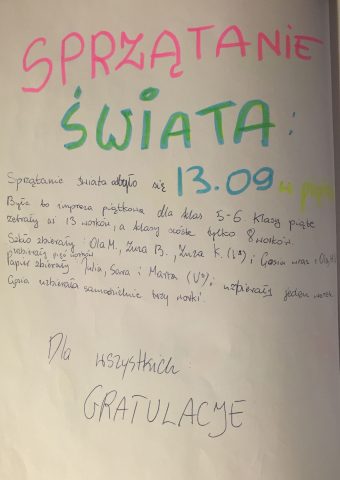 SPRZĄTANIE
ŚWIATA:
Sprzątanie świata odbyło się 13.09 w piątek
Była to impreza piątkowa dla klas 5-6. Klasy piąte
zebrały aż 13 worków, a klasy szóste tylko 8 worków
Szkło zbierały: Ola M., Zuza B., Zuza K. (Va) i Gosia wraz z
pięć worków
Papier zbierały Julia, Sara i Marta (Va); uzbierały jeden worek
Gosia uzbierała samodzielnie trzy worki.
Dla wszystkich
GRATULACJE